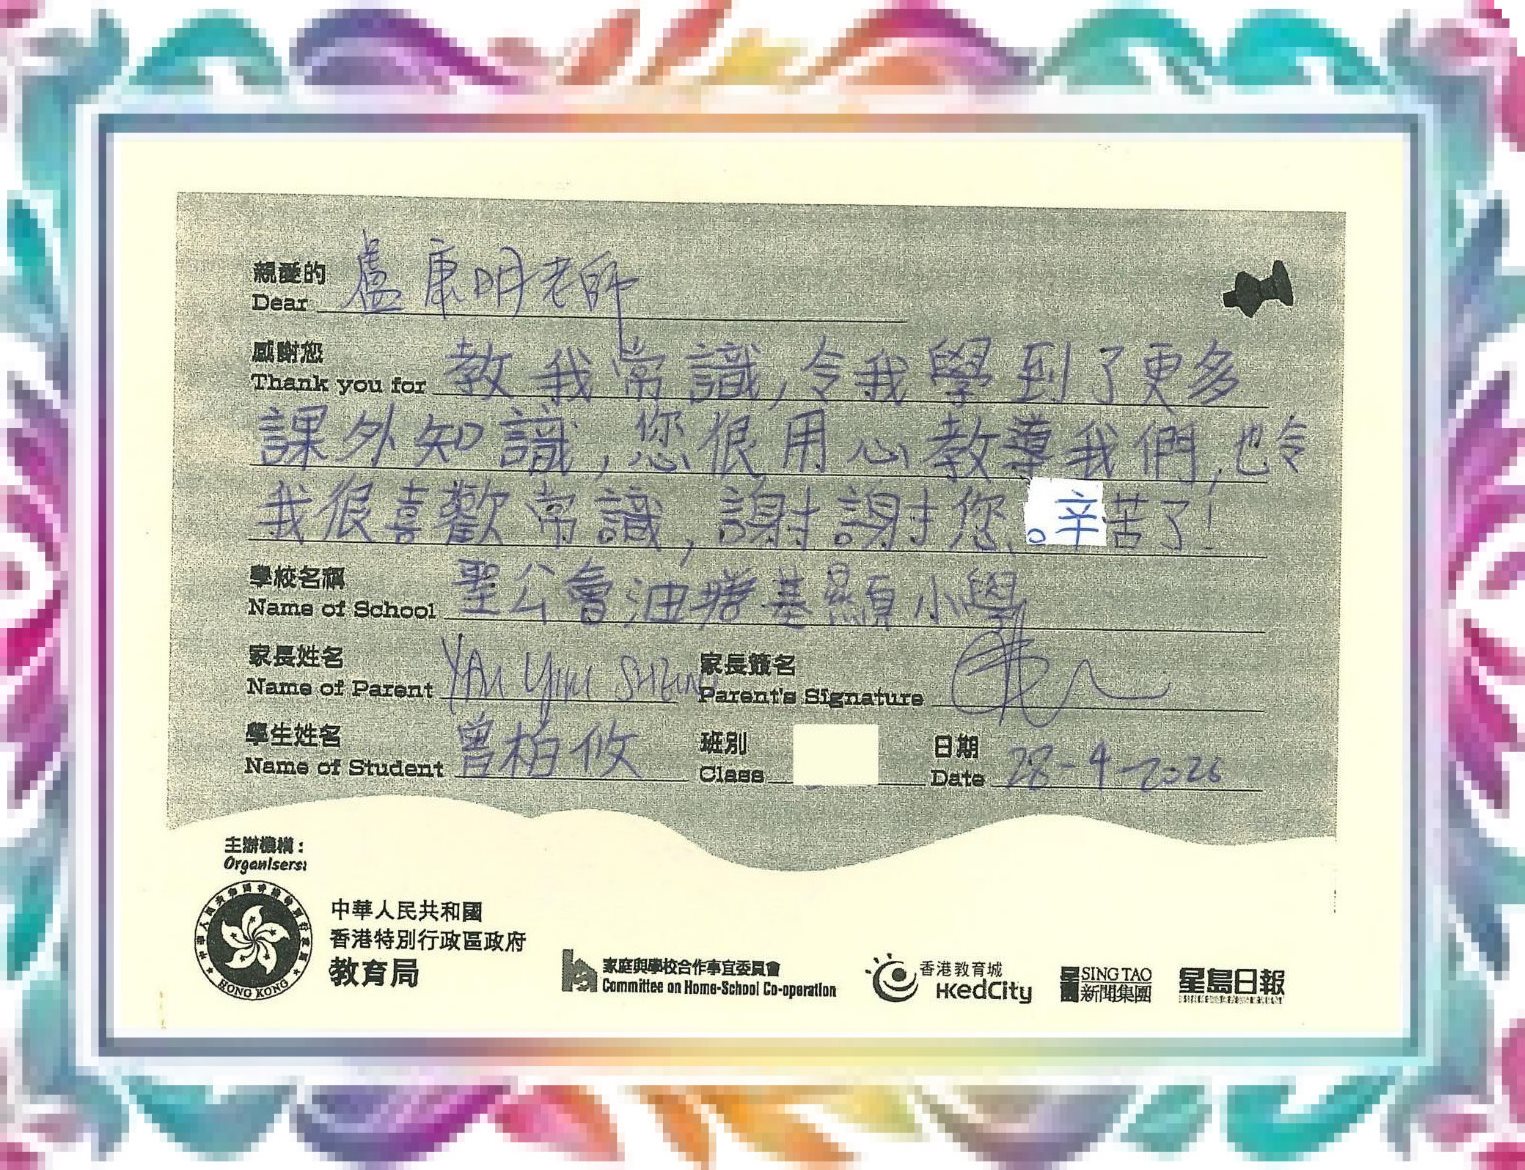 親愛的
Dear 盧康明老師
感謝您
Thank you for 教我常識,令我學到了更多
課外知識,您很用心教導我們,也令
我很喜歡常識,謝謝您。辛苦了!
學校名稱
Name of School 聖公會油塘基顯小學
家長姓名 家長簽名
Name of Parent YAU YIM Parent's Signature
學生姓名 曾柏攸 班別 日期
Name of Student Class Date 28-4-2026
主辦機構:
Organisers:
中華人民共和國
香港特別行政區政府
教育局
HONG KONG
家庭與學校合作事宜委員會
Committee on Home-School Co-operation
香港教育城
HKedCity
星島 SING TAO
新聞集團
星島日報